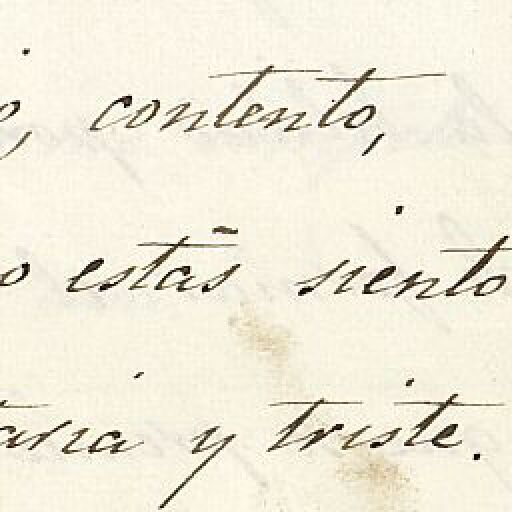 o, contento,
o estás siento
taria y triste.